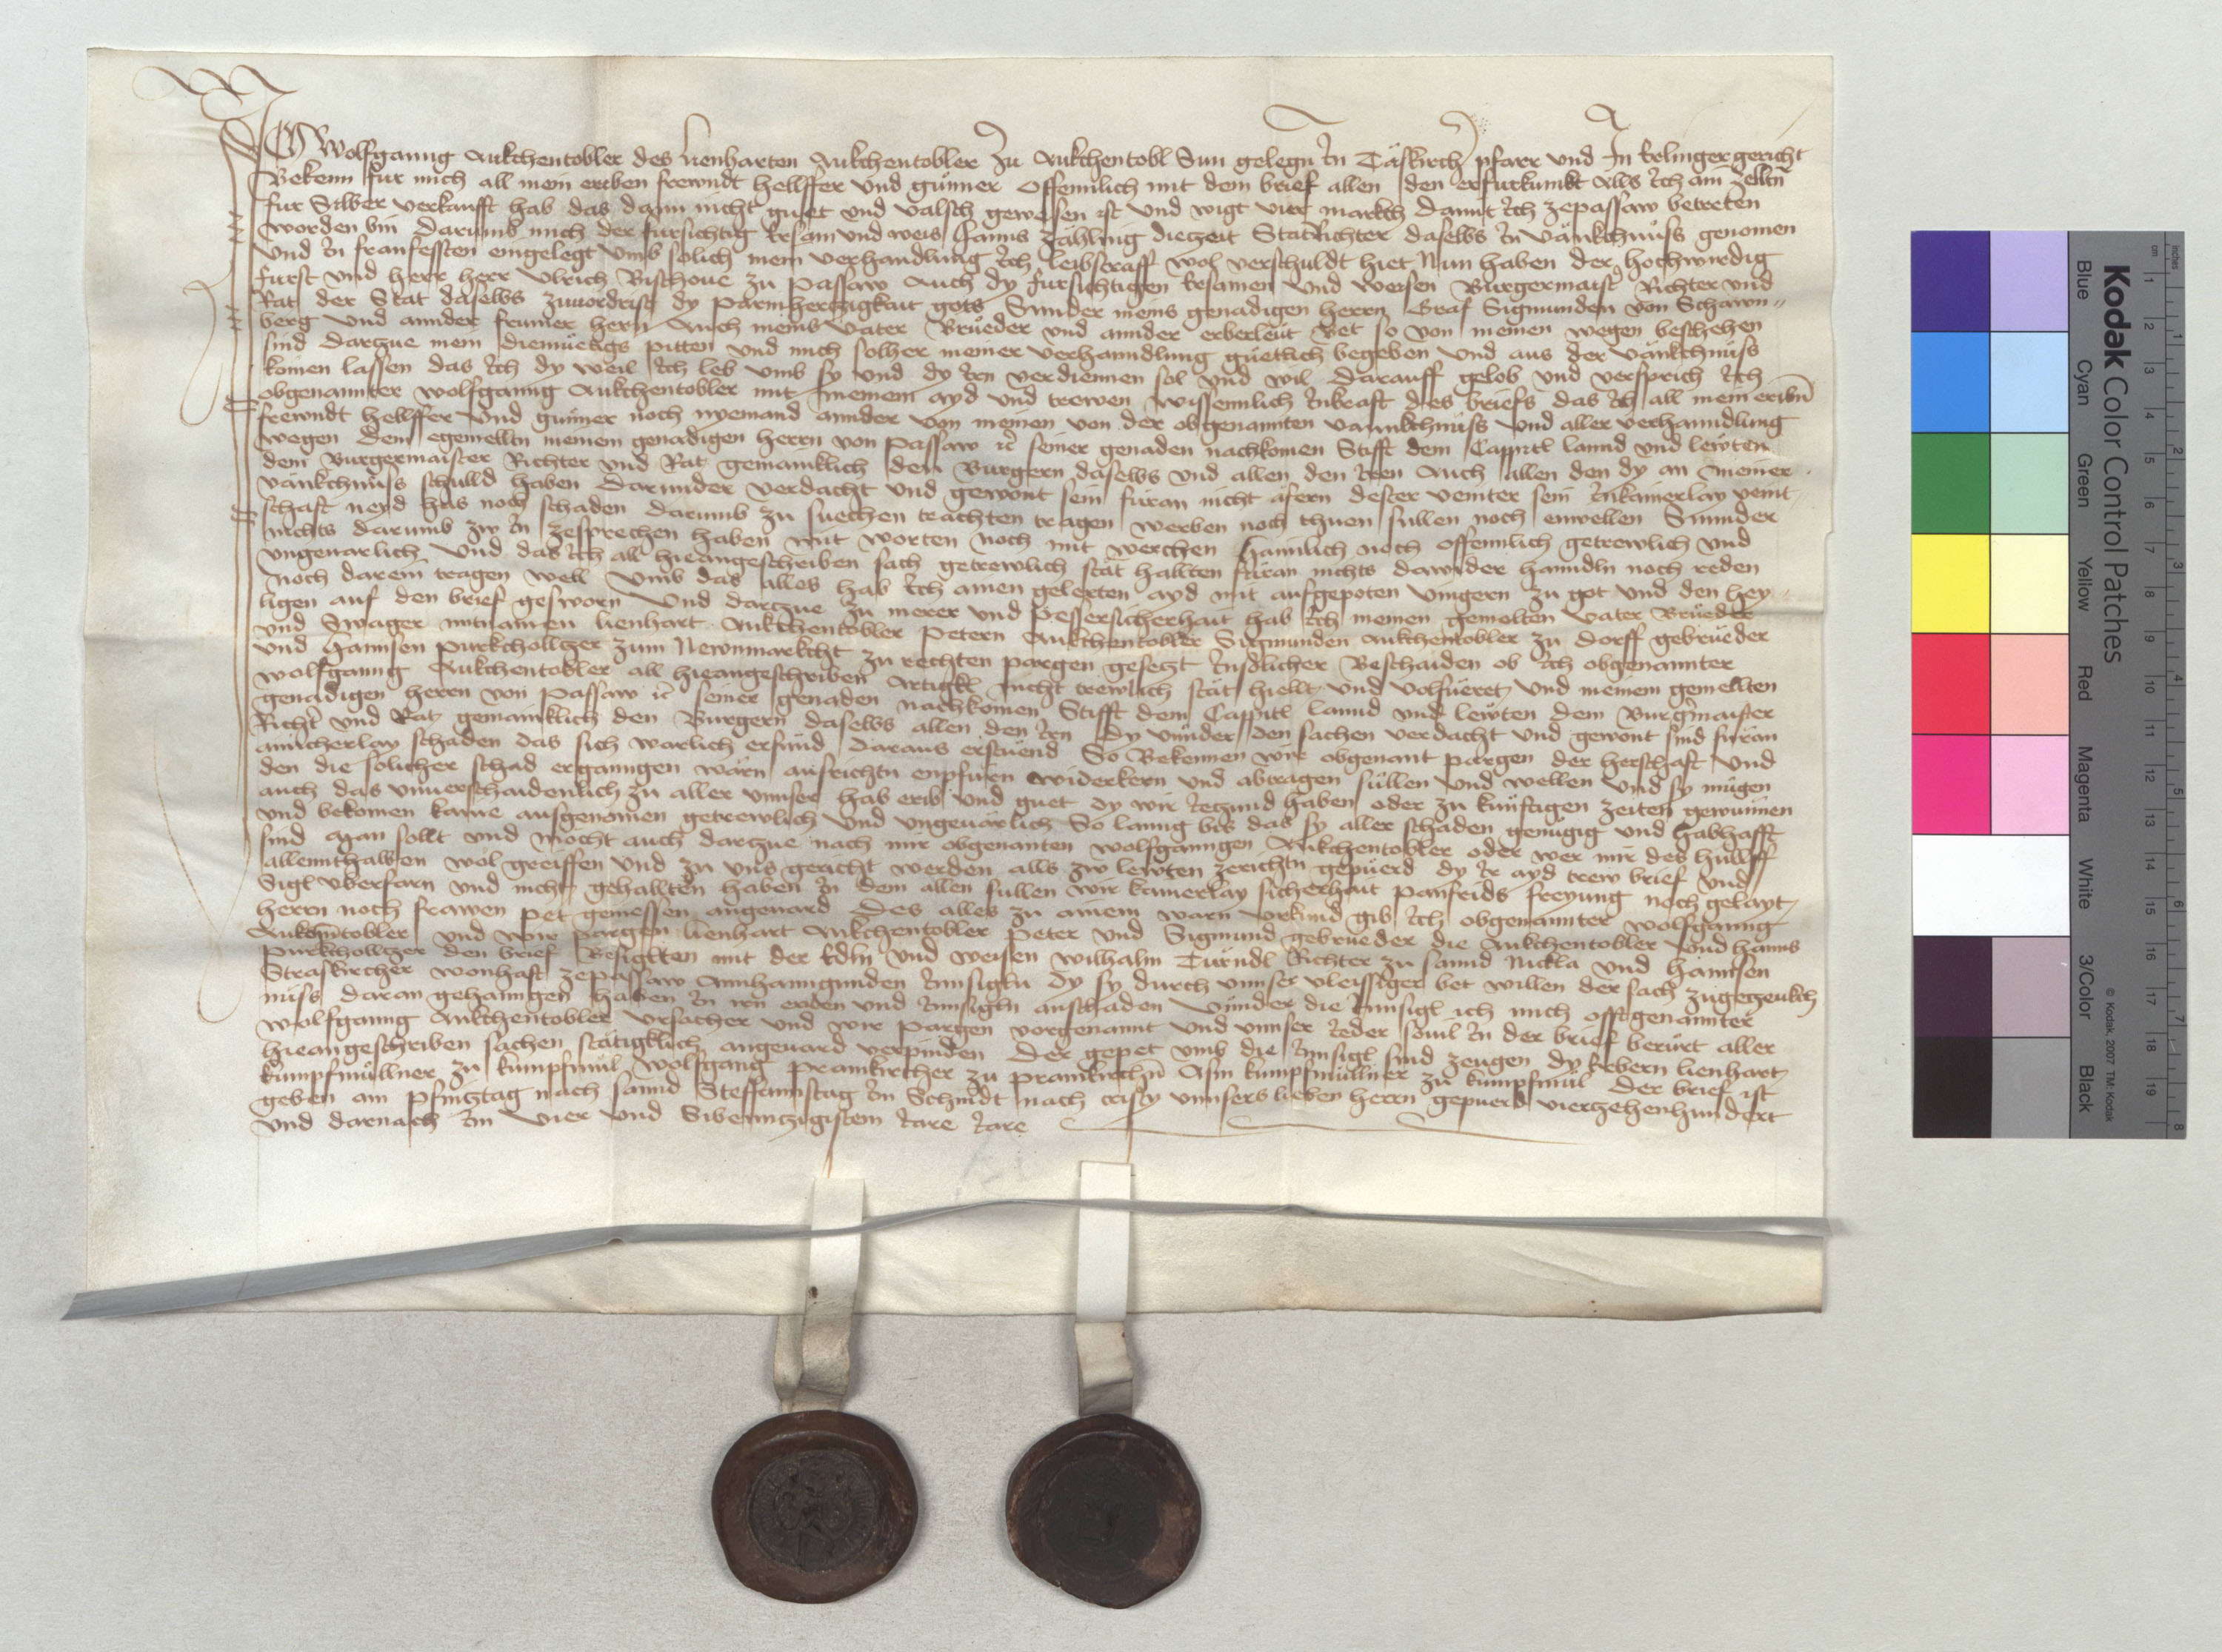 Ich Wolfganng Aukchentobler des Lienharten Aukchentobler zu Aukchentobl Sun gelegn in Täskircher pfarr und In Erlinger gericht
Bekenn fur mich all mein eriben frewndt hellffer und günner Offennlich mit dem brief allen den er furkumbt Alls ich ain zelltn
fur Silber verkaufft hab das dann nicht guet und valsch gewesen ist und wigt vier markch damit ich zepassaw betreten
worden bin darumb mich der fursichtig Ersam und weis Hanns Zähling dietzeit Statrichter daselbs in vänkchnüss genomen
und in franfessten eingelegt umb solich mein verhandlung ich leibstraff wol verschuldt hiet Nun haben der hochwirdig
furst und herr herr Ulrich Bischove zu Passaw Auch dy fursichtigen Ersamen und weisen Burgermaister Richter und
Rat der Stat daselbs zuvordrist dy parmhertzigkait gots Sunder meins genadigen herrn Graf Sigmunden von Schawn=
berg und annder frumer hern Auch meins vater Brüeder und annder erberleut bet so von meinen wegen beschehen
sind dartzue mein diemüetigs pitten und mich solher meiner verhanndlung güetlich begeben und aus der vänkchnüss
komen lassen das ich dy weil ich leb umb sy und dy irn verdiennen sol und wil Darauff gelob und versprich ich
obgenannter Wolfganng Aukchentobler mit meinem ayd und trewen wissennlich inkraft des briefs das ich all mein eribn
frewndt hellffer und gunner noch nyemand annder von meinen von der obgenannten vannkchnüss und aller verhanndlung
wegen dem egemelltn meinem genadigen herrn von Passaw ic seiner genaden nachkomen Stifft dem Cappitl lannd und lewten
dem Burgermaister Richter und Rat gemainklich den Burgern daselbs und allen den iren Auch allen den dy an meiner
vänkchnüss schulld haben darunder verdacht und gewont sein füran nicht äfern dester veinter sein inkainerlay veint
schaft neyd has noch schaden darumb zu suechen trachten tragen werben noch thuen sullen noch enwellen Sunnder
nichts darumb zw in zesprechen haben mit worten noch mit werchen Haimlich noch offennlich getrewlich und
ungevarlich Und das ich all hieangeschriben sach getrewlich stät hallten füran nichts dawider hanndln noch reden
noch darein tragen well Umb das alles hab ich ainen gelerten ayd mit aufgepoten vingern zu got und den hey=
ligen auf den brief gesworn Und dartzue zu merer und pessersicherhait hab ich meinen gemelten vater Brüeder
und Swager mitnamen Lienhart Aukchentobler Petern Aukchentobler Sigmunden Aukchentobler zu Dorff gebrüeder
und Hannsen Purkchollczer zum Newnmarkcht zu rechten porgen gesetzt Insölicher Beschaiden ob ich obgenannter
Wolfganng Aukchentobler all hieangeschriben Artigkl nicht trewlich stät hiellt und volfüeret und meinem gemellten
genadigen herrn von Passaw ic seiner genaden nachkomen Stifft dem Cappitl lannd und lewten dem Burgermaister
Richter und Rat gemainklich den Burgern daselbs allen den irn dy under den sachen verdacht und gewont sind füran
ainicherlay schaden das sich warlich erfund daraus erstüend So Bekennen wir obgenant porgen der herschaft und
den die solicher schad erganngen wärn ausrichtn enpfürn widerkern und abtragen süllen und wellen und sy mügen
auch das unverschaidenlich zu aller unnser hab erib und guet dy wir yetzund haben oder zu kunftigen zeiten gewinnen
und bekomen kains ausgenomen getrewlich und ungevärlich So lanng bis das sy aller schaden genügig und habhafft
sind Man sollt und möcht auch dartzue nach mir obgenanten Wolfganngen Aukchentobler oder wer mir des hullff
allennthalben wol greiffen und zu uns gericht werden alls zw lewten zerichtn gepüerd dy ir ayd trew brief und
Sigl uberfarn und nicht gehallten haben in dem allen sullen wir kainerlay sicherhait panfrids freyung noch gelayt
herrn noch frawen pet geniessen angevard Des alles zu ainem warn urkund gib ich obgenannter Wolfganng
Aukchentobler und wir porgen Lienhart Aukchentobler Peter und Sigmund gebrueder die Aukchentobler und Hanns
Purkchollczer den brief Besigllten mit der Edln und weisen Wilhalm Türndl Richter zu sannd Nickla und Hannsen
Straskircher wonhaft zepassaw Annhanngunden Innsigln dy sy durch unnser vleissiger bet willen der sach zugetzeukch
nüss daran gehanngen haben in irn erben und Innsigln anschaden under die Innsigl ich mich offtgenannter
Wolfganng Aukchentobler ursacher und wir porgen vorgenannt und unnser yeder sovil in der brief berürt aller
hieangeschriben sachen stätigklich angevard verpinden Der gepet umb die Innsigl sind zeugen dy Erbern Lienhart
kumpfmüllner zu kumpfmül Wolfgang Pramkircher zu Pramkirchn Asm kumpfmüllner zu kumpfmül Der brief ist
geben am Pfintztag nach sannd Steffannstag Im Schnidt nach cristy unnsers lieben herrn gepuerd vierzehenhundert
und darnach im vier und Sibenntzigistem Iare Iare
Kodak Color Control Patches
Blue Cyan Green Yellow Red Magenta White 3/Color Black
© Kodak, 2007 TM: Kodak
cm 1 2 3 4 5 6 7 8 9 10 11 12 13 14 15 16 17 18 19
inches 1 2 3 4 5 6 7 8